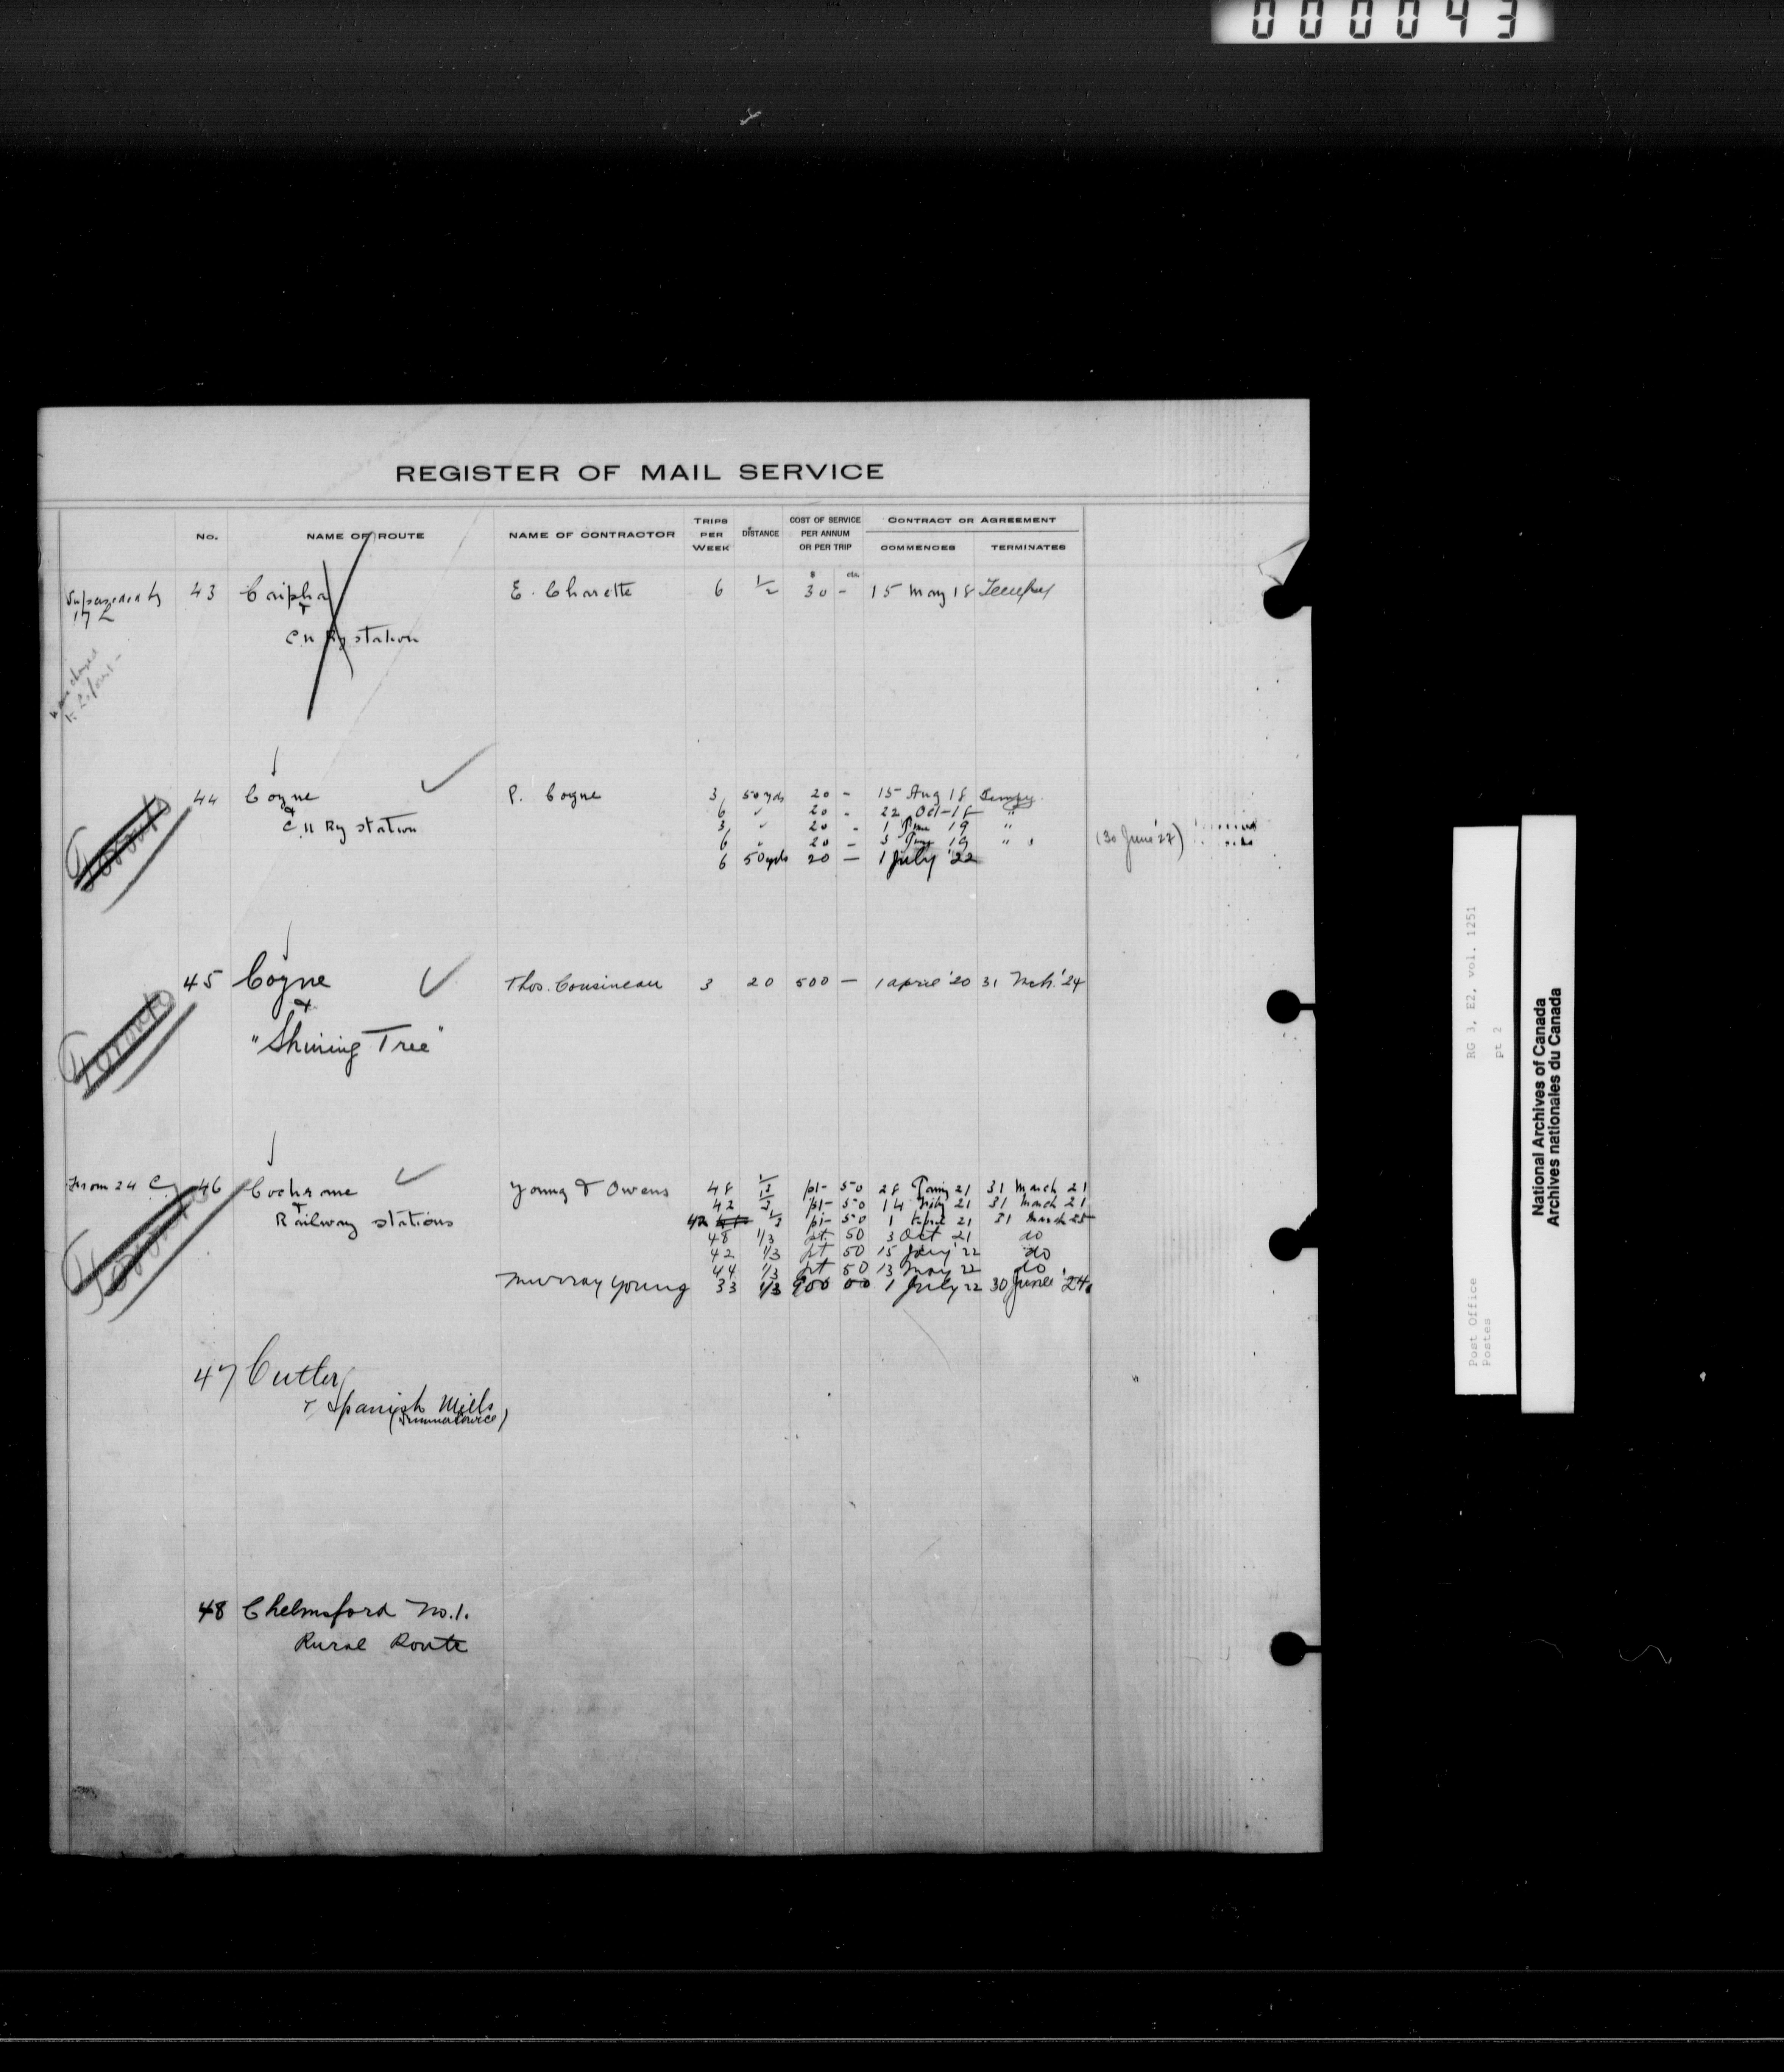 000043
REGISTER OF MAIL SERVICE
No. NAME OF ROUTE NAME OF CONTRACTOR TRIPS PER WEEK DISTANCE COST OF SERVICE PER ANNUM OR PER TRIP CONTRACT OR AGREEMENT COMMENCES TERMINATES
$ cts
Superseded by 43 E. Charette 6 1/2 30 - 15 May 18
172
C.N Ry station
name changed
to
44 Coyne P. Coyne 3 50 yds 20 - 15 Aug 18 Tempy
& 6 " 20 - 22 Oct 18 "
C.N Ry station 3 " 20 - 1 19 "
6 " 20 - 3 19 " (30 June '22)
6 50 yds 20 - 1 July '22
Toronto
45 Coyne Thos. Cousineau 3 20 500 - 1 April '20 31 Mch. '24
&
"Shining Tree"
Toronto
From 24 C 46 Cochrane Young & Owens 48 1/3 pt 50 28 21 31 March 21
& 42 1/3 pt 50 14 21 31 March 21
Railway stations 42 1/3 pt 50 1 April 21 31 March 25
48 1/3 pt 50 3 Oct 21 do
42 1/3 pt 50 15 Jany '22 do
44 1/3 pt 50 13 May 22 do
Murray Young 33 1/3 900 00 1 July 22 30 June '24
Toronto
47 Cutler
& Spanish Mills
(Summer Service)
48 Chelmsford No. 1.
Rural Route
RG 3, E2, vol. 1251
pt 2
Post Office
Postes
National Archives of Canada
Archives nationales du Canada